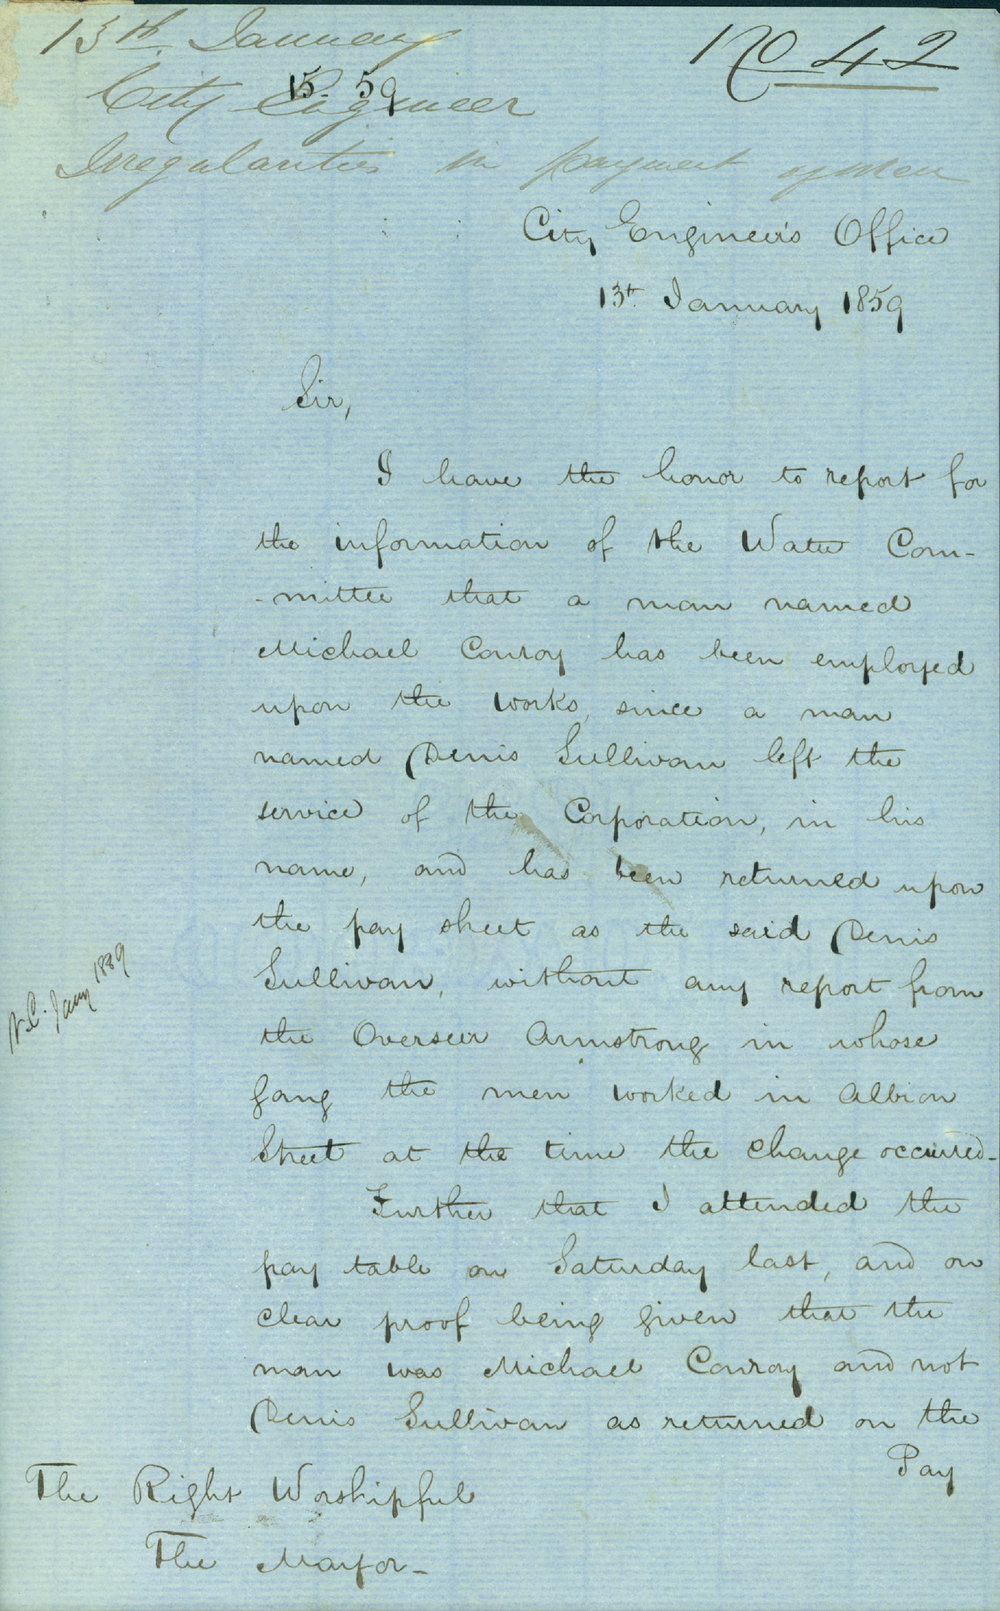 13th. January
No 42
15. 59
City Engineer
Irregularities in payment of men
City Engineer's Office
13th January 1859
Sir,
I have the honor to report for
the information of the Water Com-
-mittee that a man named
Michael Conroy has been employed
upon the works, since a man
named Denis Sullivan left the
service of the Corporation, in his
name, and has been returned upon
the pay sheet as the said Denis
Sullivan, without any report from
the Overseer Armstrong in whose
gang the men worked in Albion
Street at the time the change occurred_
Further that I attended the
pay table on Saturday last, and on
clear proof being given that the
man was Michael Conroy and not
Denis Sullivan as returned on the
Pay
The Right Worshipful
The Mayor_
Jany